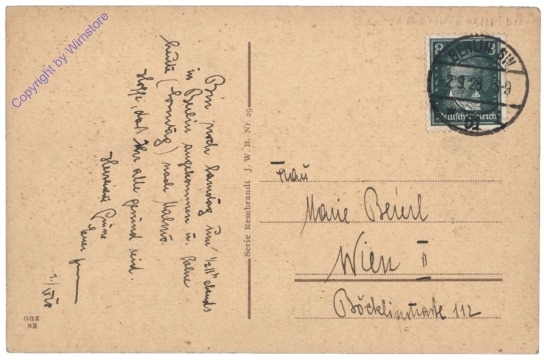 Copyright by Wimstore
Bin noch Samstag um ½11ʰ abends
in Berlin angekommen u. fahre
heute (Sonntag) nach Malmö.
Hoffe, daß Ihr alle gesund seid.
Herzliche Grüße
Euer
Serie Rembrandt J. W. B. Nr. 29
8
Deutsches Reich
BERLIN SW
Frau
Marie Beierl
Wien II
Böcklinstraße 112